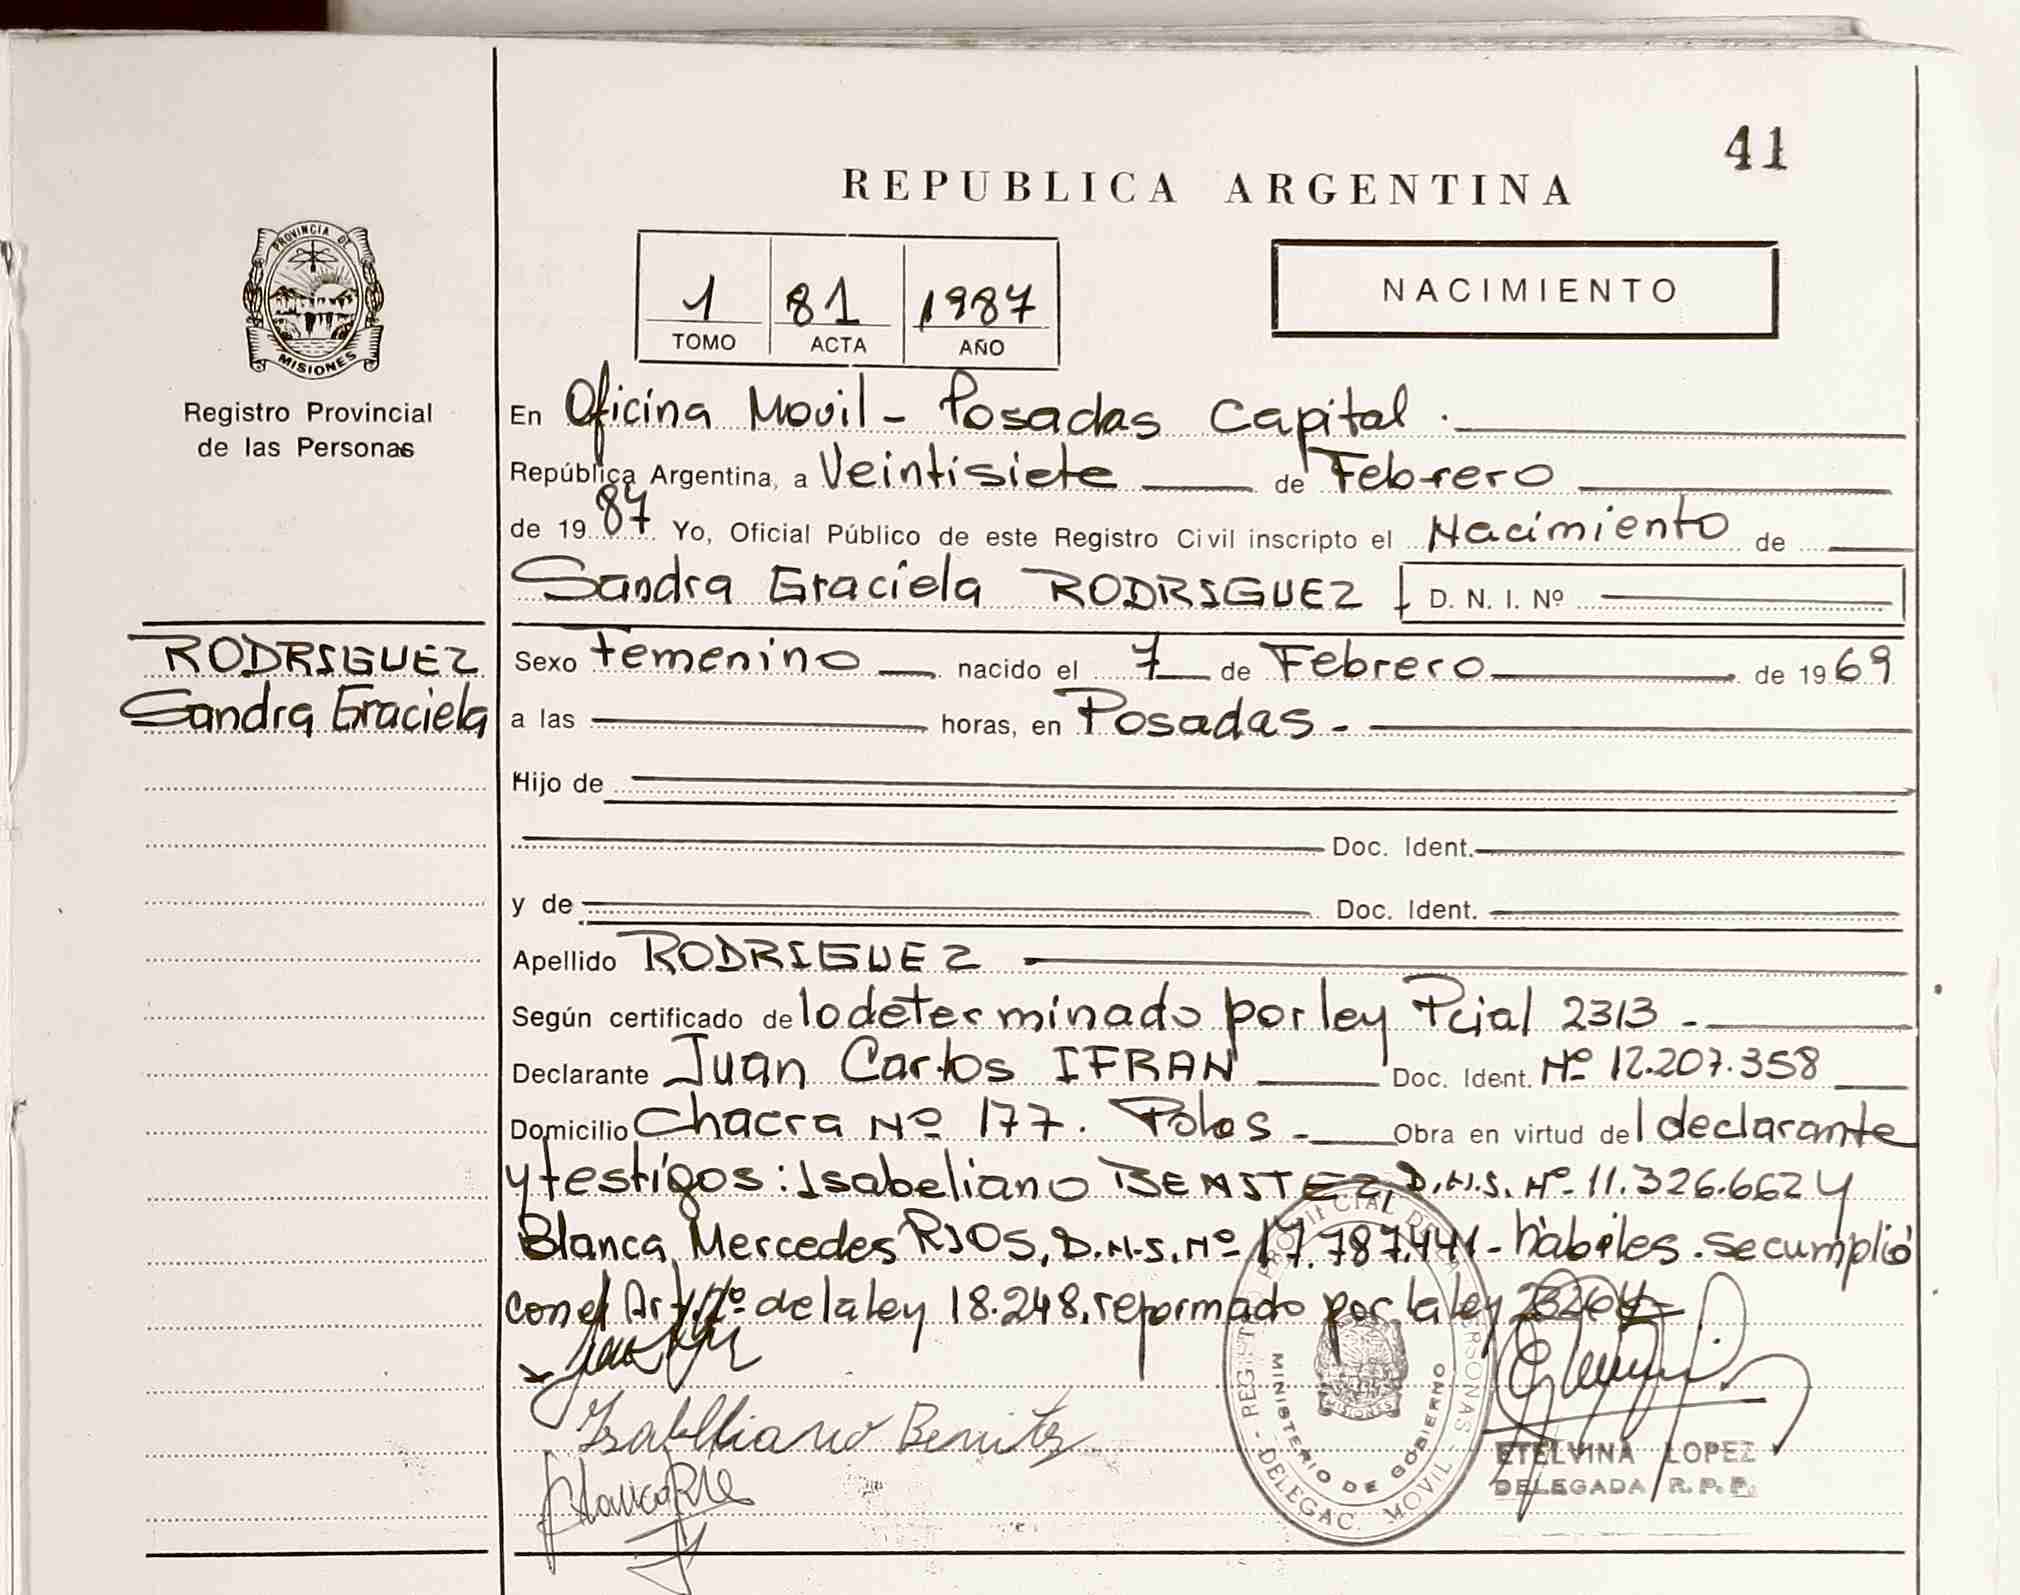 41
REPUBLICA ARGENTINA
PROVINCIA DE
MISIONES
Registro Provincial
de las Personas
1 81 1987
TOMO ACTA AÑO
NACIMIENTO
En Oficina Movil - Posadas Capital.
República Argentina, a Veintisiete de Febrero
de 1987 Yo, Oficial Público de este Registro Civil inscripto el Nacimiento de
Sandra Graciela RODRIGUEZ D. N. I. Nº
RODRIGUEZ
Sandra Graciela
Sexo Femenino nacido el 7 de Febrero de 1969
a las horas, en Posadas -
Hijo de
Doc. Ident.
y de Doc. Ident.
Apellido RODRIGUEZ
Según certificado de lo determinado por ley Pcial 2313 -
Declarante Juan Carlos IFRAN Doc. Ident. Nº 12.207.358
Domicilio Chacra Nº 177. Pdas - Obra en virtud del declarante
y testigos: Isabeliano BENITEZ, D.N.I. Nº 11.326.662 y
Blanca Mercedes RIOS, D.N.I. Nº 17.787.441 - hàbiles. se cumpliò
con el Art. de la ley 18.248, reformado por la ley
Isabelliano Benitez
REGISTRO PROVINCIAL DE LAS PERSONAS - DELEGAC. MOVIL -
MINISTERIO DE GOBIERNO
MISIONES
ETELVINA LOPEZ
DELEGADA R.P.P.